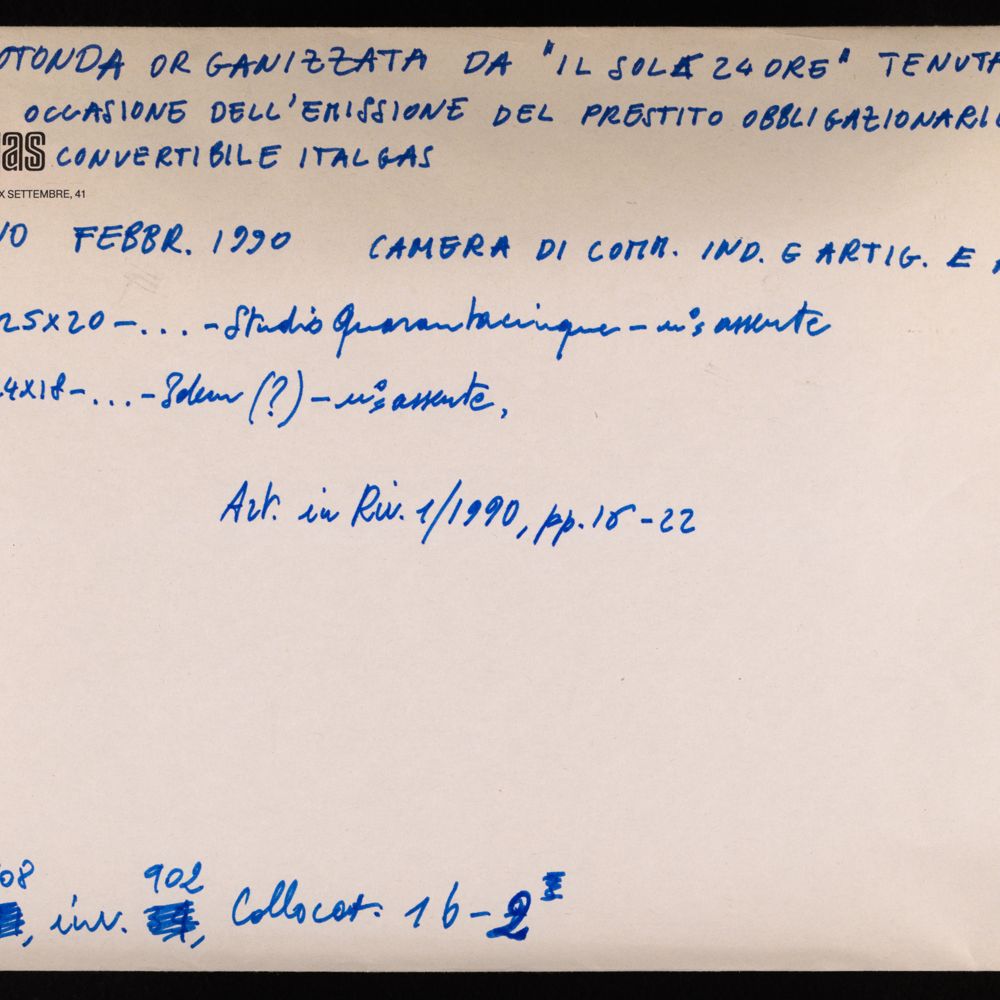 OTONDA ORGANIZZATA DA "IL SOLE 24 ORE" TENUTA
OCCASIONE DELL'EMISSIONE DEL PRESTITO OBBLIGAZIONARIO
as CONVERTIBILE ITALGAS
X SETTEMBRE, 41
NO FEBBR. 1990 CAMERA DI COMM. IND. E ARTIG. E
25X20 - ... - Studio Quarantacinque - assente
4X18 - ... - Idem (?) - assente,
Art. in Riv. 1/1990, pp. 16-22
08 902
, inv. , Collocat. 16-2